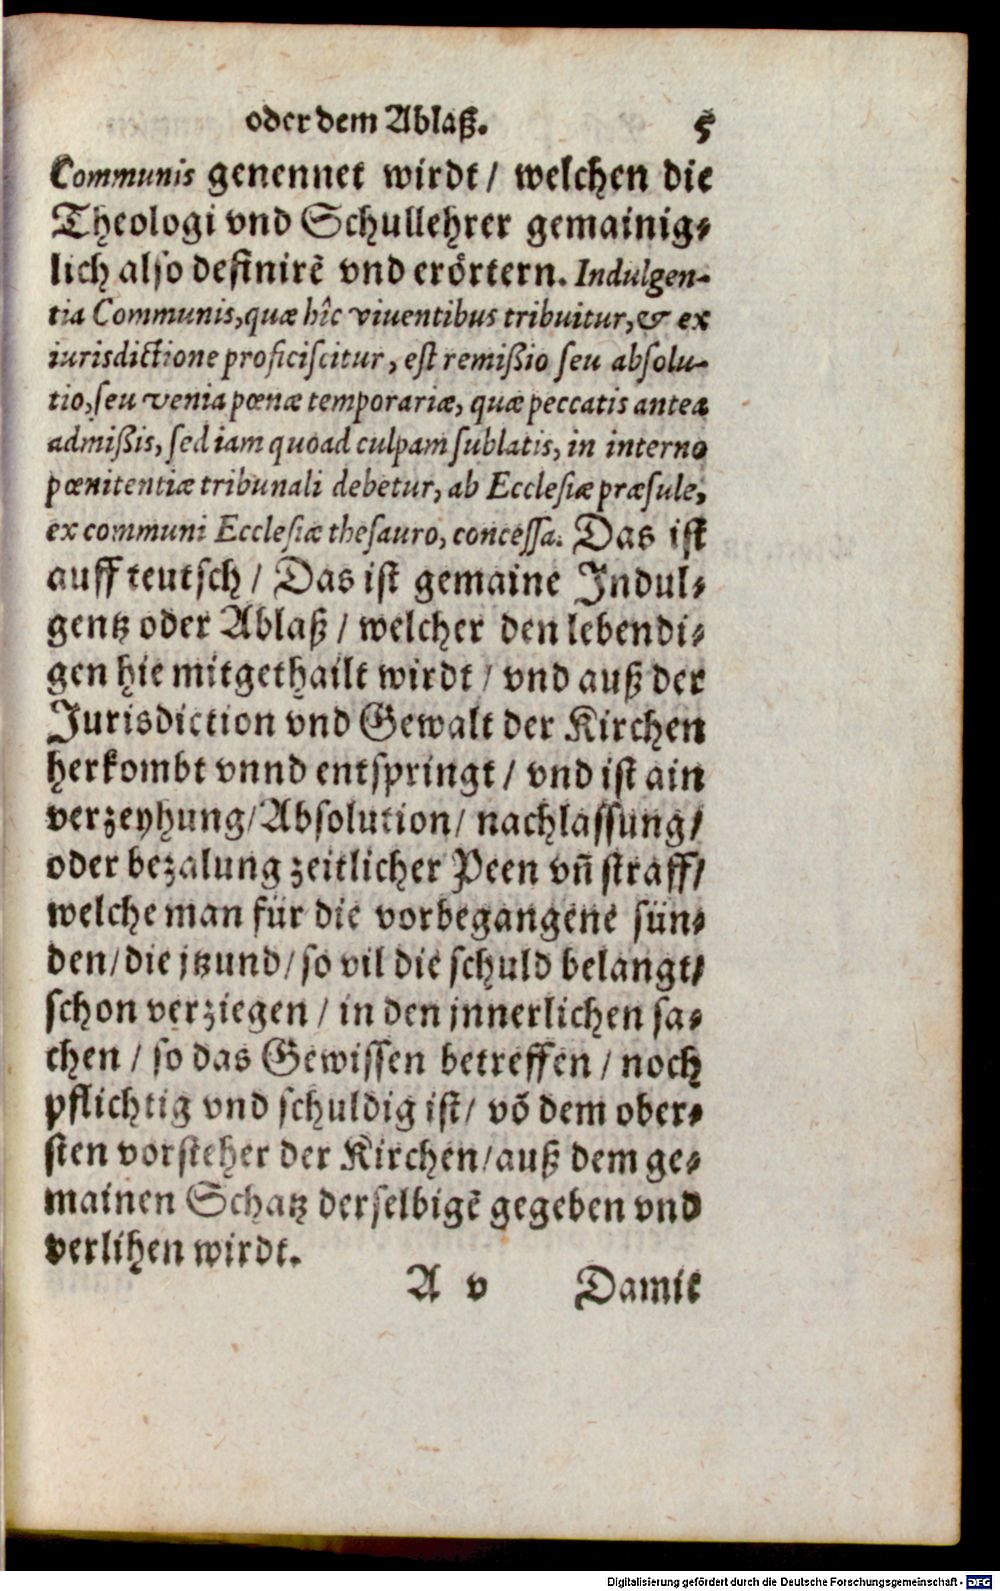 oder dem Ablaß. 5
Communis genennet wirdt / welchen die
Theologi vnd Schullehrer gemainig⸗
lich also definirẽ vnd erörtern. Indulgen-
tia Communis, quæ hîc viuentibus tribuitur, & ex
iurisdictione proficiscitur, est remißio seu absolu-
tio, seu venia pœnæ temporariæ, quæ peccatis antea
admißis, sed iam quoad culpam sublatis, in interno
pœnitentiæ tribunali debetur, ab Ecclesiæ præsule,
ex communi Ecclesiæ thesauro, concessa. Das ist
auff teutsch / Das ist gemaine Indul⸗
gentz oder Ablaß / welcher den lebendi⸗
gen hie mitgethailt wirdt / vnd auß der
Jurisdiction vnd Gewalt der Kirchen
herkombt vnnd entspringt / vnd ist ain
verzeyhung / Absolution / nachlassung /
oder bezalung zeitlicher Peen vñ straff /
welche man für die vorbegangene sün⸗
den / die jtzund / so vil die schuld belangt /
schon verziegen / in den jnnerlichen sa⸗
chen / so das Gewissen betreffen / noch
pflichtig vnd schuldig ist / võ dem ober⸗
sten vorsteher der Kirchen / auß dem ge⸗
mainen Schatz derselbigẽ gegeben vnd
verlihen wirdt.
A v Damit
Digitalisierung gefördert durch die Deutsche Forschungsgemeinschaft - DFG